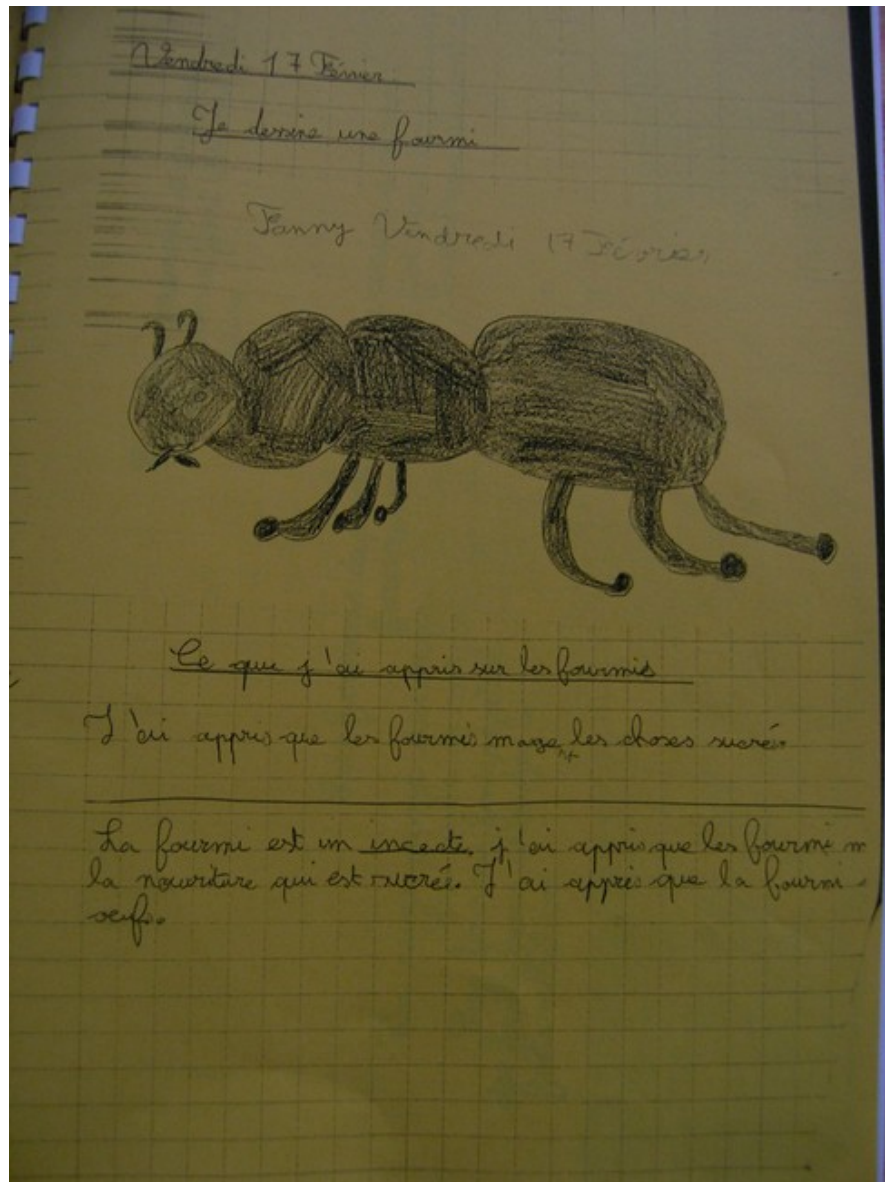 Vendredi 17 Février
Je dessine une fourmi
Fanny Vendredi 17 Février
Ce que j'ai appris sur les fourmis
J'ai appris que les fourmis mage nt les choses sucrés
La fourmi est un incecte. j'ai appris que les fourmi m
la nouriture qui est sucré. J'ai appris que la fourmi
oeufs.